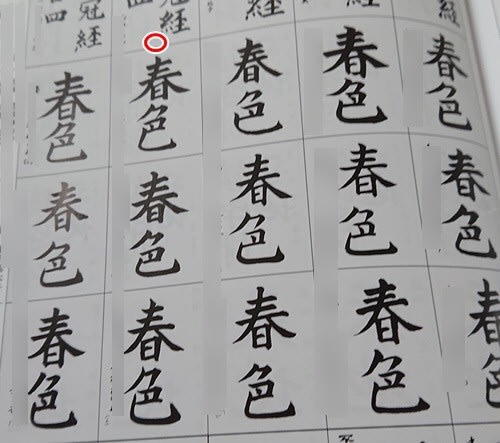 冠経
四
冠経
四
春色
春色
春色
春色
春色
春色
春色
春色
春色
春色
春色
春色
春色
春色
春色